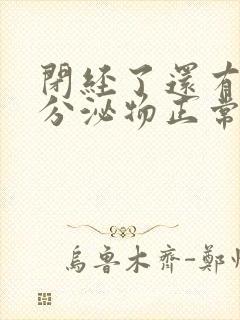 閉經了還有
分泌物正常
烏魯木齊-鄭州